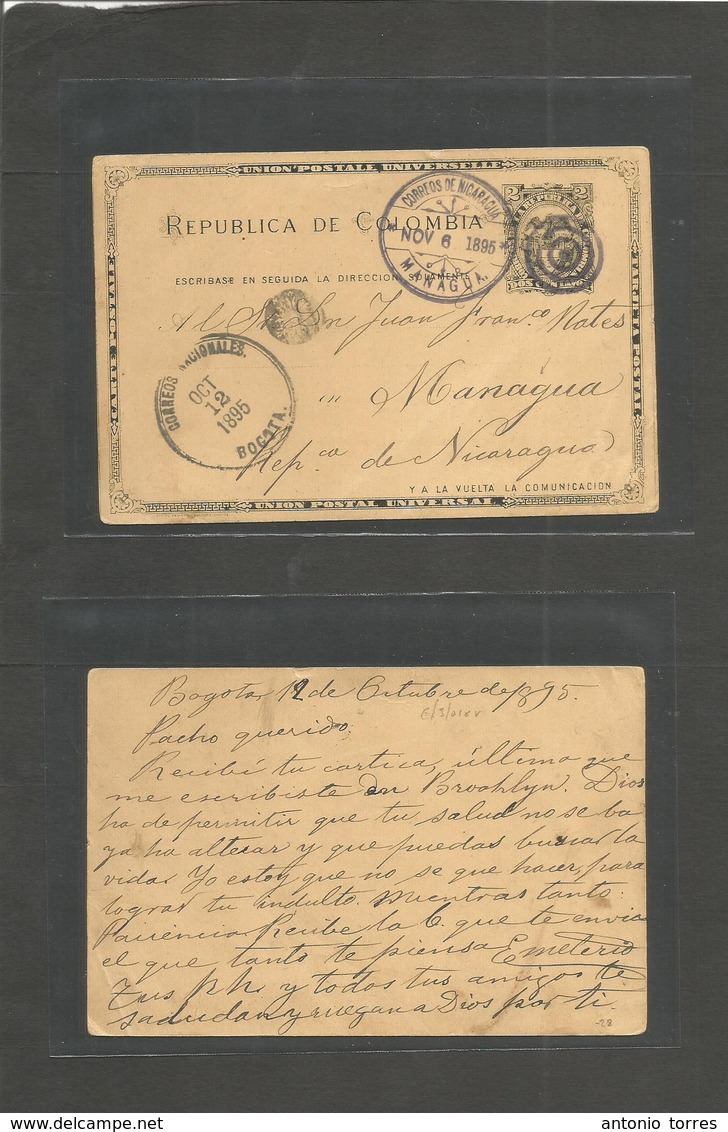 UNION POSTALE UNIVERSELLE
CARTE POSTALE
TARJETA POSTAL
REPUBLICA DE COLOMBIA
2
2
DOS CENTAVOS
CORREOS DE NICARAGUA
* NOV 6 1895 *
MANAGUA.
ESCRIBASE EN SEGUIDA LA DIRECCION SOLAMENTE
Al Sr. Dn Juan Franco
en Managua
CORREOS NACIONALES.
OCT
12
1895
BOGOTA.
Repca de Nicaragua
Y A LA VUELTA LA COMUNICACION
UNION POSTAL UNIVERSAL
Bogota, 12 de Octubre de 1895.
Pacho querido:
Recibí tu cartica, última que
me escribiste en Brooklyn. Dios
ha de permitir que tu salud no se ba
ya ha altecar y que puedas buscar la
vida. Yo estoy que no se que hacer, para
lograr tu indulto. Mientras tanto:
Paciencia Recibe la C. que te envia
el que tanto te piensa Emeterio
Tus hh. y todos tus amigos te
saludan y ruegan a Dios por ti.
-28
antonio torres